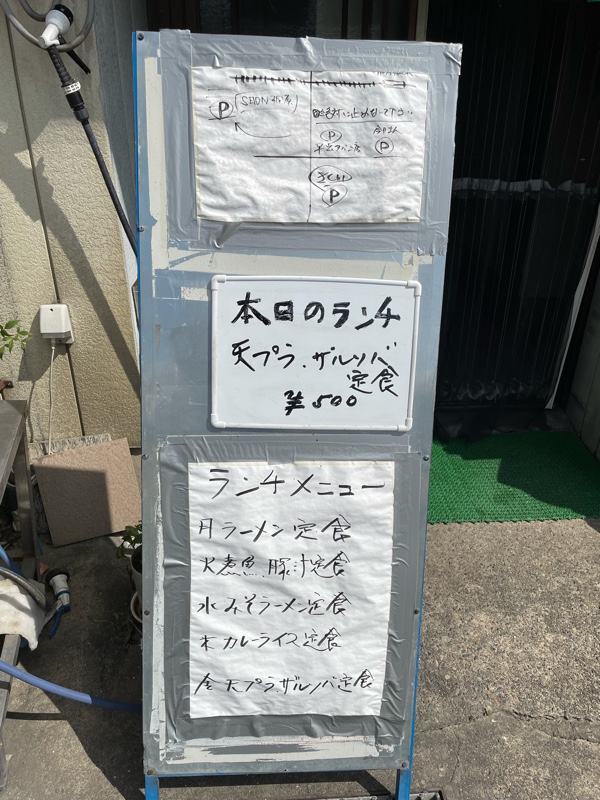 P
P
P
P
本日のランチ
天プラ.ザルソバ
定食
¥500
ランチメニュー
月ラーメン定食
火煮魚.豚汁定食
水みそラーメン定食
木カレーライス定食
金天プラ.ザルソバ定食